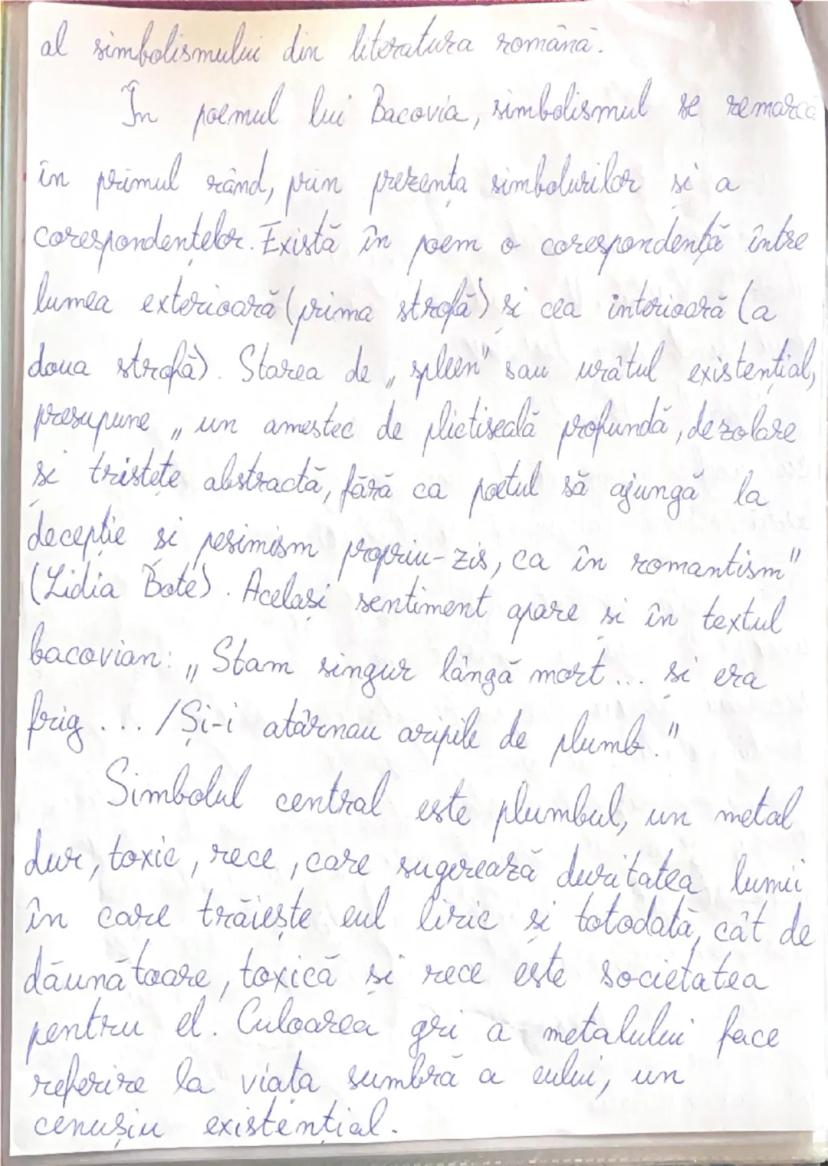 al simbolismului din literatura română.
În poemul lui Bacovia, simbolismul se remarcă
în primul rând, prin prezența simbolurilor și a
corespondențelor. Există în poem o corespondență între
lumea exterioară (prima strofă) și cea interioară (a
doua strofă). Starea de „spleen" sau urâtul existențial,
presupune „un amestec de plictiseală profundă, dezolare
și tristețe abstractă, fără ca poetul să ajungă la
decepție și pesimism propriu-zis, ca în romantism"
(Lidia Bote). Același sentiment apare și în textul
bacovian: „Stam singur lângă mort... și era
frig... /Și-i atârnau aripile de plumb."
Simbolul central este plumbul, un metal
dur, toxic, rece, care sugerează duritatea lumii
în care trăiește eul liric și totodată, cât de
dăunătoare, toxică și rece este societatea
pentru el. Culoarea gri a metalului face
referire la viața sumbră a eului, un
cenușiu existențial.